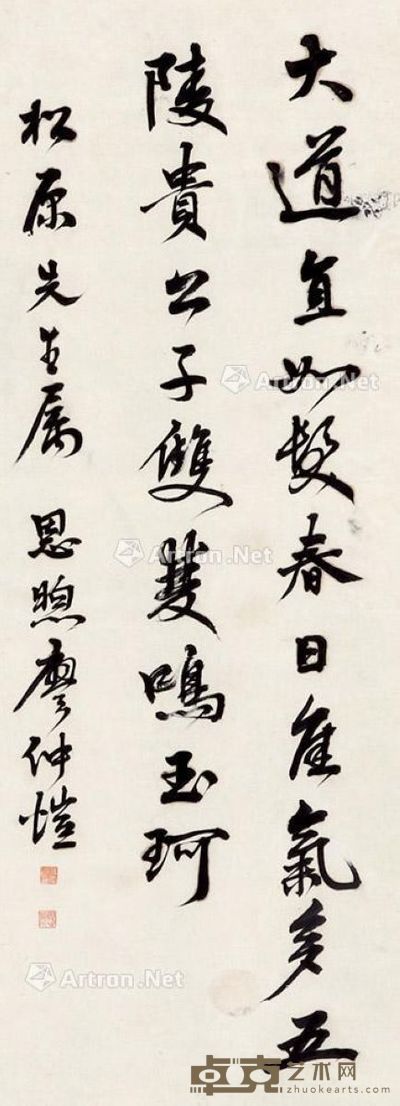 大道直如髮春日佳氣多五
陵貴公子雙雙鳴玉珂
松原先生属 恩煦廖仲愷
Artron.Net
Artron.Net
Artron.Net
卓克艺术网
zhuokearts.com